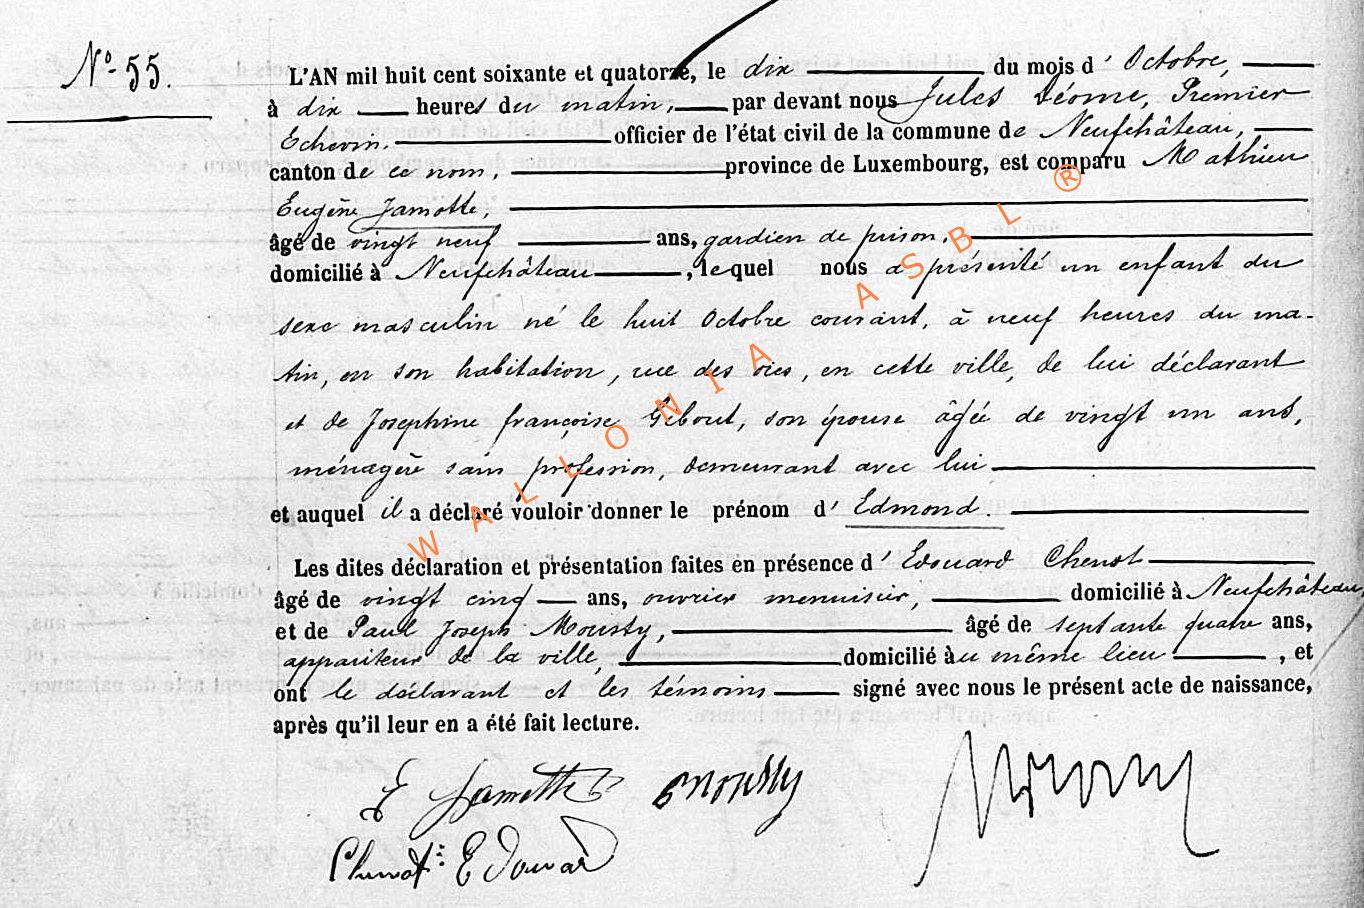 N° 55.
L'AN mil huit cent soixante et quatorze, le dix du mois d' Octobre,
à dix heures du matin, par devant nous Jules Déome, Premier
Echevin, officier de l'état civil de la commune de Neufchâteau,
canton de ce nom, province de Luxembourg, est comparu Mathieu
Eugène Jamotte,
âgé de vingt neuf ans, gardien de prison,
domicilié à Neufchâteau, lequel nous a présenté un enfant du
sexe masculin né le huit Octobre courant, à neuf heures du ma-
tin, en son habitation, rue des oies, en cette ville, de lui déclarant
et de Josephine françoise Gibout, son épouse âgée de vingt un ans,
ménagère sans profession, demeurant avec lui
et auquel il a déclaré vouloir donner le prénom d' Edmond.
Les dites déclaration et présentation faites en présence d' Edouard Chenot
âgé de vingt cinq ans, ouvrier menuisier, domicilié à Neufchâteau,
et de Paul Joseph Mousty, âgé de septante quatre ans,
appariteur de la ville, domicilié au même lieu, et
ont le déclarant et les témoins signé avec nous le présent acte de naissance,
après qu'il leur en a été fait lecture.
E Jamotte Mousty
Chenot Edouard
WALLONIA ASBL ®